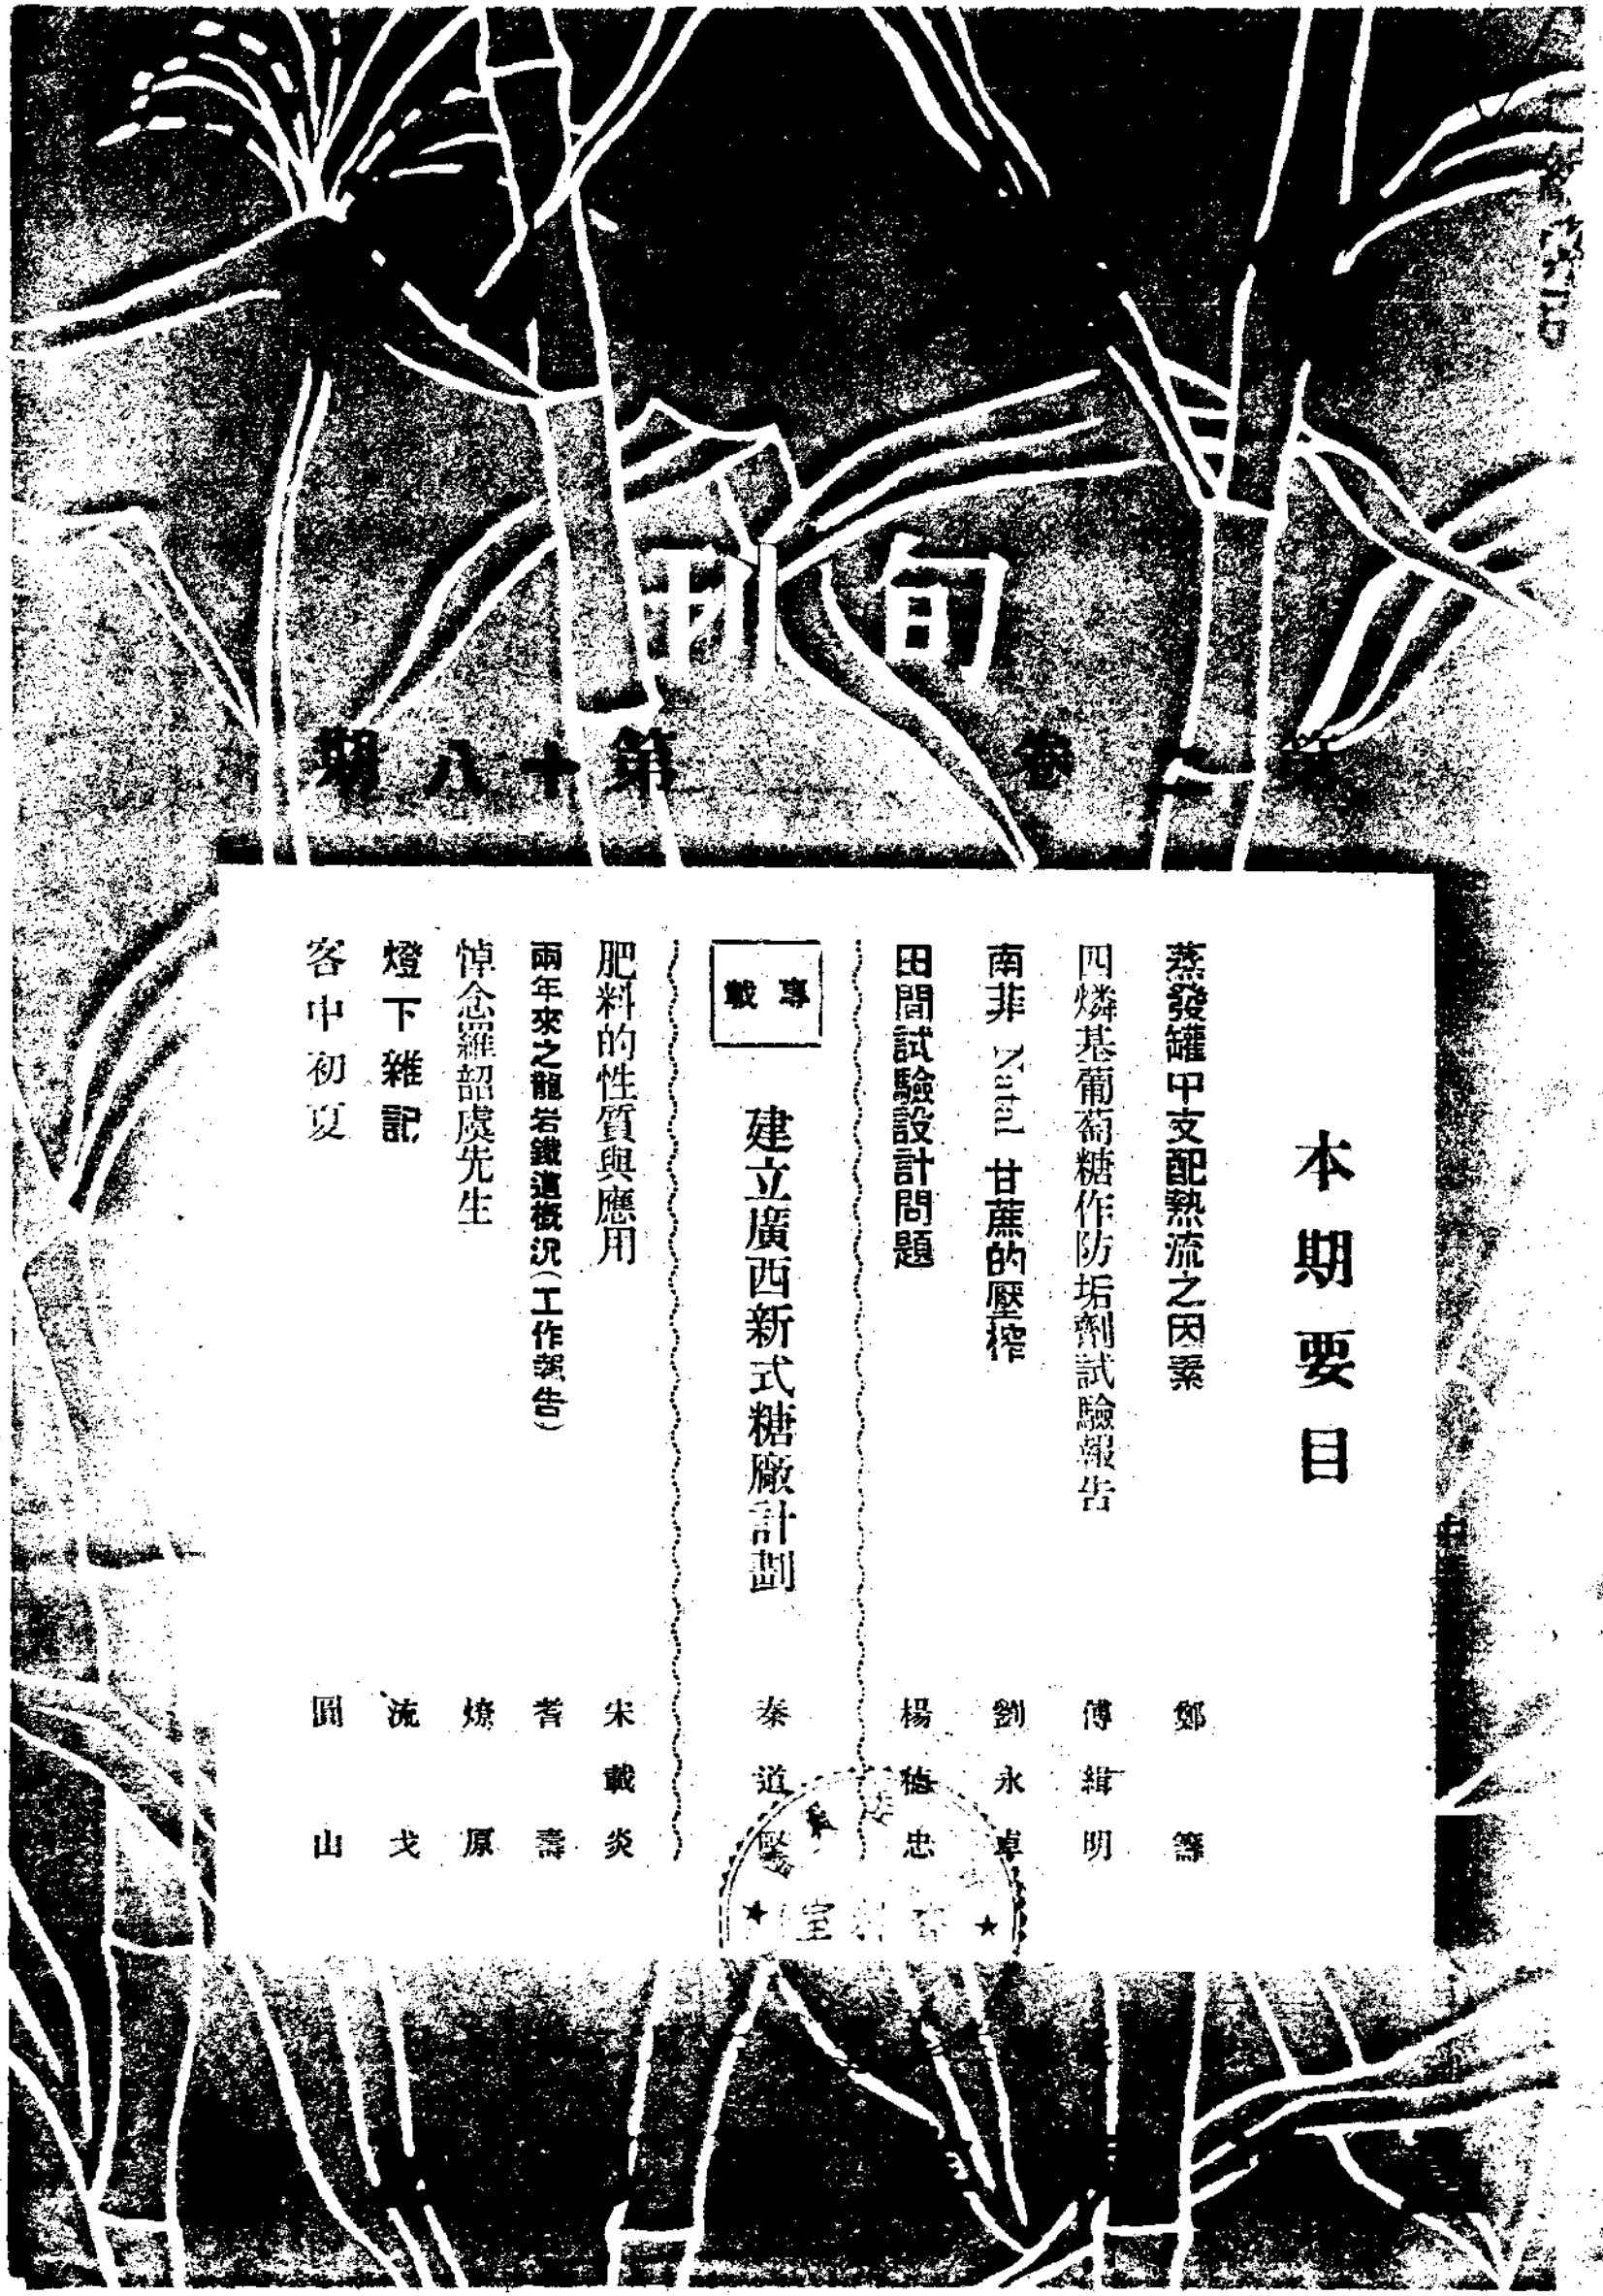 旬刊
第二卷 第十八期
本期要目
蒸發罐中支配熱流之因素 鄭籜
四燐基葡萄糖作防垢劑試驗報告 傅緝明
南非 Natal 甘蔗的壓榨 劉永卓
田間試驗設計問題 楊德忠
專載
建立廣西新式糖廠計劃 秦道堅
肥料的性質與應用 宋載炎
兩年來之龍岩鐵道概況（工作報告） 耆壽
悼念羅韶虞先生 燎原
燈下雜記 流戈
客中初夏 圓山